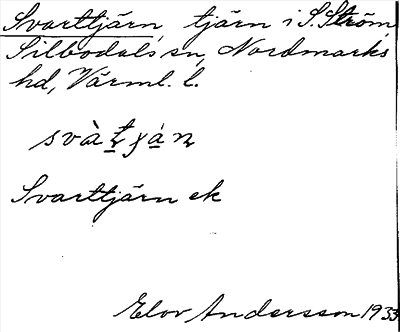 Svarttjärn, tjärn i S. Ström,
Silbodals sn, Nordmarks
hd, Värml. l.
Svarttjärn ek
Elov Andersson 1933